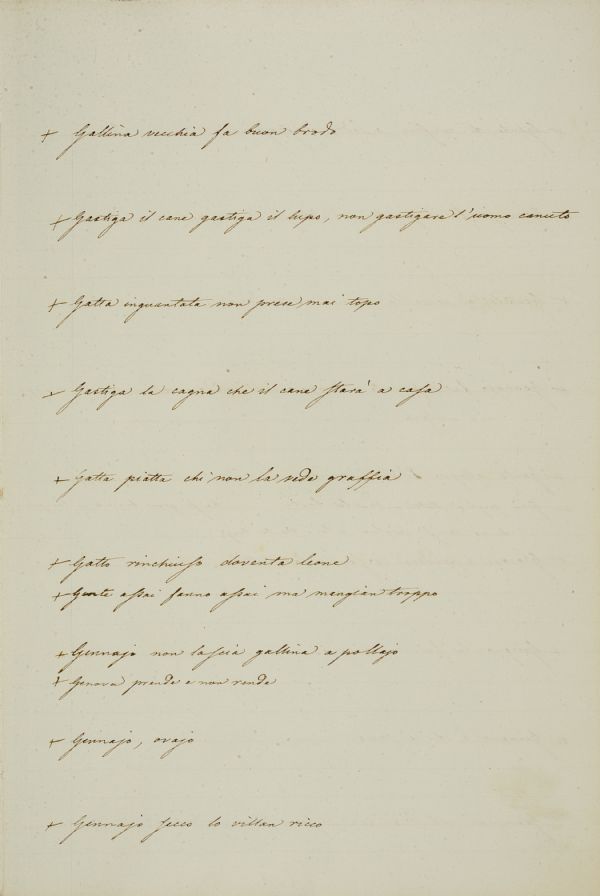 + Gallina vecchia fa buon brodo
+ Gastiga il cane gastiga il lupo, non gastigare l'uomo canuto
+ Gatta inguantata non prese mai topo
+ Gastiga la cagna che il cane starà a casa
+ Gatta piatta chi non la vede graffia
+ Gatto rinchiuso doventa leone
+ Gente assai fanno assai ma mangian troppo
+ Gennajo non lascia gallina a pollajo
+ Genova prende e non rende
+ Gennajo, ovajo
+ Gennajo secco lo villan ricco